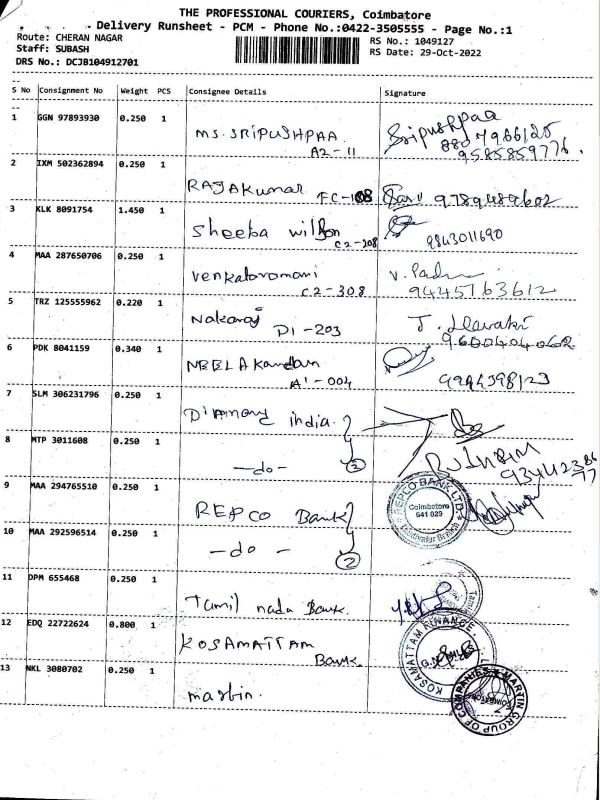 THE PROFESSIONAL COURIERS, Coimbatore
Delivery Runsheet - PCM - Phone No.:0422-3505555 - Page No.:1
Route: CHERAN NAGAR
RS No.: 1049127
Staff: SUBASH
RS Date: 29-Oct-2022
DRS No.: DCJB104912701
S No Consignment No Weight PCS Consignee Details Signature
1 GGN 97893930 0.250 1 MS. SRIPUSHPAA Sripushpaa
A2-11 9585859776.
2 IXM 502362894 0.250 1
RAJAKUMAR FC-108 9789489602
3 KLK 8091754 1.450 1
Sheeba Wilson C2-208 9843011690
4 MAA 287650706 0.250 1 V. Padma
Venkataramani C2-308 9445763612
5 TRZ 125555962 0.220 1
Nakaraj D1-203
6 PDK 8041159 0.340 1
NEELAKandan A1-004
7 SLM 306231796 0.250 1
Diamond india.
8 MTP 3011608 0.250 1
-do- 2
9 MAA 294765510 0.250 1
REPCO Bank REPCO BANK LTD Coimbatore 641 029
10 MAA 292596514 1 0.250
- do - 2
11 DPM 655468 0.250 1
Tamil nadu Bank.
12 EDQ 22722624 0.800 1
KOSAMATTAM Bank. KOSAMATTAM FINANCE
13 NKL 3080702 0.250 1
martin. MARTIN GROUP OF COMPANIES